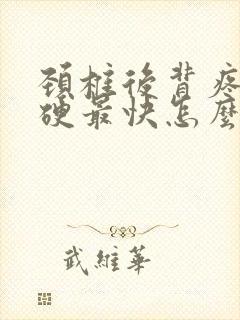 頚椎後背疼
硬最快怎麼
武維華